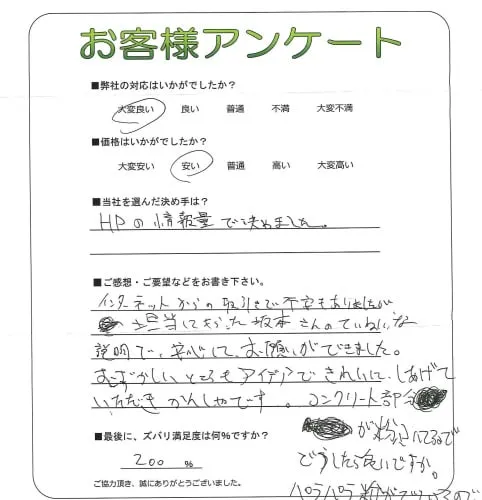 お客様アンケート
■弊社の対応はいかがでしたか？
大変良い 良い 普通 不満 大変不満
■価格はいかがでしたか？
大変安い 安い 普通 高い 大変高い
■当社を選んだ決め手は？
HPの情報量で決めました。
■ご感想・ご要望などをお書き下さい。
インターネットからの取引きで不安もありましたが
担当になった坂本さんのていねいな
説明で、安心して、お願いができました。
むずかしいところもアイデアできれいに、しあげて
いただきかんしゃです。コンクリート部分
が粉ふいてるので
どうしたら良いですか。
パラパラ粉がでているので
■最後に、ズバリ満足度は何％ですか？
200 %
ご協力頂き、誠にありがとうございました。